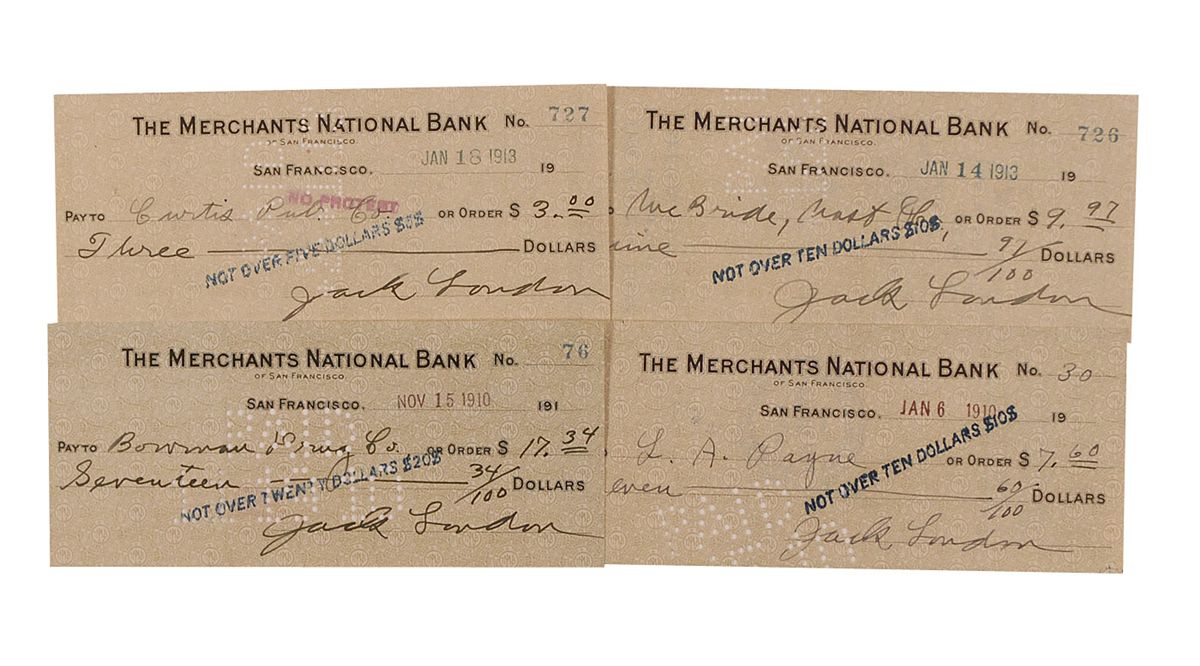 THE MERCHANTS NATIONAL BANK No. 727
OF SAN FRANCISCO.
SAN FRANCISCO. JAN 18 1913 19
NO PROTEST
PAY TO Curtis Pub. Co. OR ORDER $ 3.00
Three DOLLARS
NOT OVER FIVE DOLLARS $5$
Jack London
THE MERCHANTS NATIONAL BANK No. 726
OF SAN FRANCISCO.
SAN FRANCISCO. JAN 14 1913 19
McBride, Nast & Co., OR ORDER $ 9.97
ine 97/100 DOLLARS
NOT OVER TEN DOLLARS $10$
Jack London
THE MERCHANTS NATIONAL BANK No. 76
OF SAN FRANCISCO.
SAN FRANCISCO. NOV 15 1910 191
PAY TO Bowman Drug Co. OR ORDER $ 17.34
Seventeen 34/100 DOLLARS
NOT OVER TWENTY DOLLARS $20$
Jack London
THE MERCHANTS NATIONAL BANK No. 30
OF SAN FRANCISCO.
SAN FRANCISCO. JAN 6 1910 19
L. A. Payne OR ORDER $ 7.60
even 60/100 DOLLARS
NOT OVER TEN DOLLARS $10$
Jack London